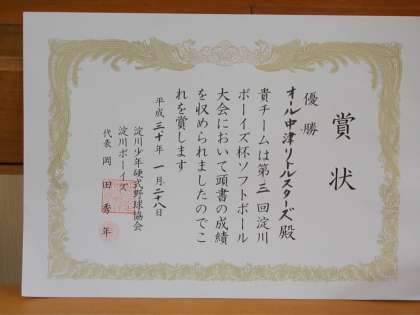 賞状
優勝
オール中津リトルスターズ殿
貴チームは第三回淀川
ボーイズ杯ソフトボール
大会において頭書の成績
を収められましたのでこ
れを賞します
平成三十年一月二十八日
淀川少年硬式野球協会
淀川ボーイズ
代表岡田秀年